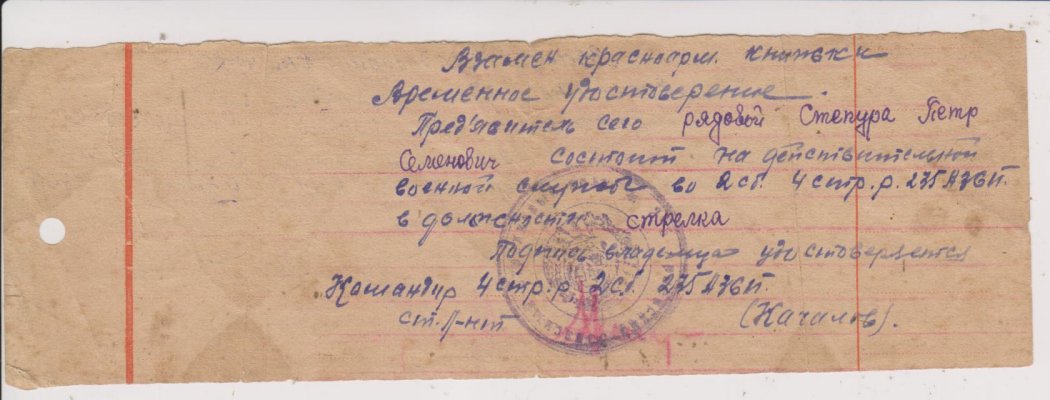 Взамен красноарм. книжки
Временное удостоверение.
Пред'явитель сего рядовой Степура Петр
Семенович состоит на действительной
военной службе во 2 сб. 4 стр. р. 235 АЗСП.
в должности стрелка
Подпись владельца удостоверяется
Командир 4 стр. р. 2 сб. 235 АЗСП.
ст. л-нт (Качалов).